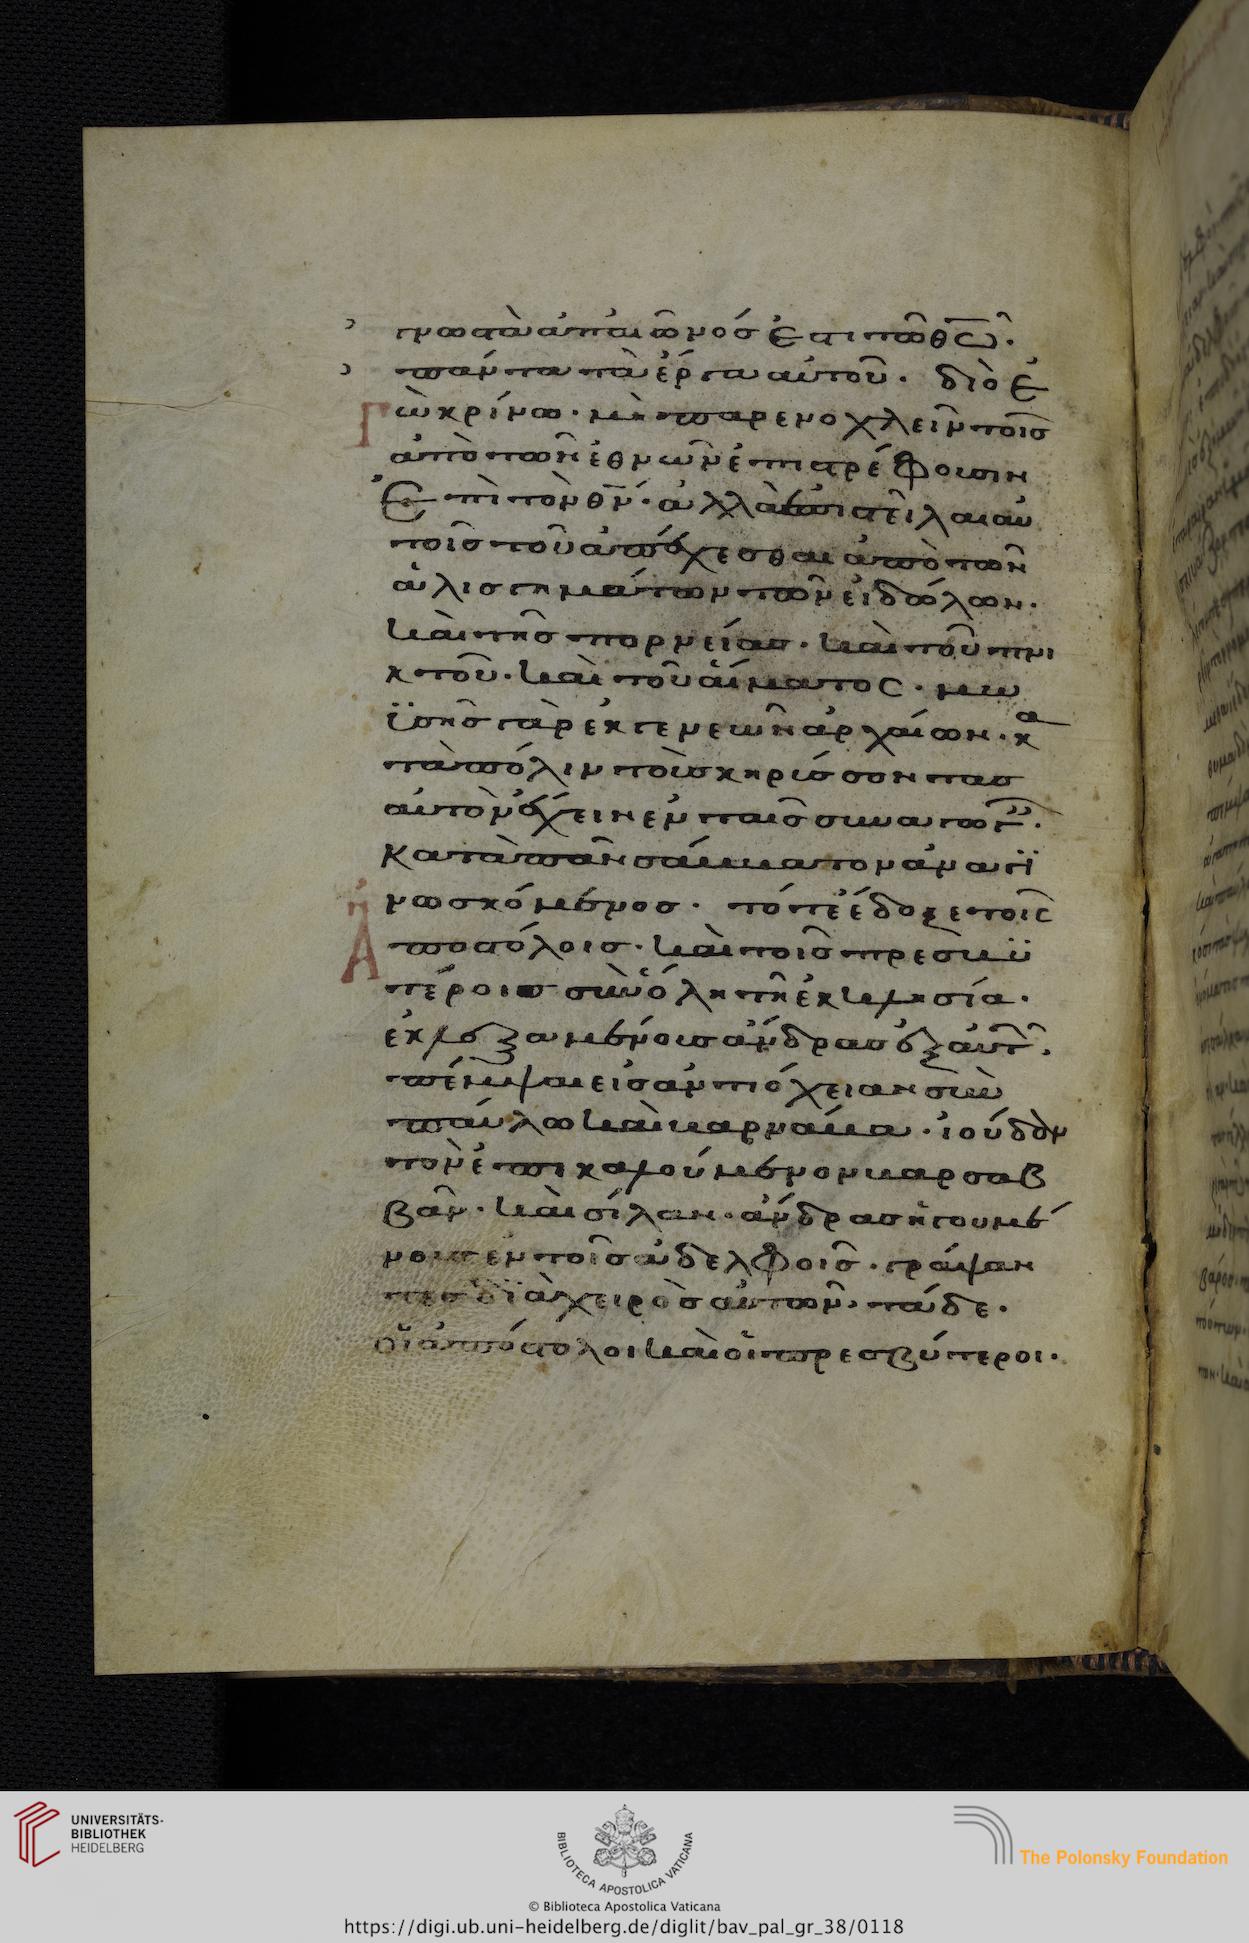 γνωστὰ ἀπ' αἰῶνός ἐστι τῶ θω̅.
πάντα τὰ ἔργα αὐτοῦ. διὸ ἐ
γὼ κρίνω. μὴ παρενοχλεῖν τοῖς
ἀπὸ τῶν ἐθνῶν ἐπιστρέφουσιν
ἐπὶ τὸν θν̅. ἀλλὰ ἐπιστεῖλαι αὐ
τοῖς τοῦ ἀπέχεσθαι ἀπὸ τῶν
ἀλισγημάτων τῶν εἰδώλων.
καὶ τῆς πορνείας. καὶ τοῦ πνι
κτοῦ. καὶ τοῦ αἵματος. μω
ϋσῆς γὰρ ἐκ γενεῶν ἀρχαίων. κα
τὰ πόλιν τοὺς κηρύσσοντας
αὐτὸν ἔχει ἐν ταῖς συναγωγ.
κατὰ πᾶν σάββατον ἀναγι
νωσκόμενος. τότε ἔδοξε τοῖς
ἀποστόλοις. καὶ τοῖς πρεσβυ
τέροις σὺν ὅλη τῆ ἐκκλησία.
ἐκλεξαμένους ἄνδρας ἐξ αὐτ.
πέμψαι εἰς ἀντιόχειαν σὺν
παύλω καὶ βαρνάβα. ἰούδαν
τὸν ἐπικαλούμενον βαρσαβ
βᾶν. καὶ σίλαν. ἄνδρας ἡγουμέ
νους ἐν τοῖς ἀδελφοῖς. γράψαν
τες διὰ χειρὸς αὐτῶν τάδε.
οἱ ἀπόστολοι καὶ οἱ πρεσβύτεροι.
UNIVERSITÄTS-
BIBLIOTHEK
HEIDELBERG
BIBLIOTECA APOSTOLICA VATICANA
The Polonsky Foundation
© Biblioteca Apostolica Vaticana
https://digi.ub.uni-heidelberg.de/diglit/bav_pal_gr_38/0118